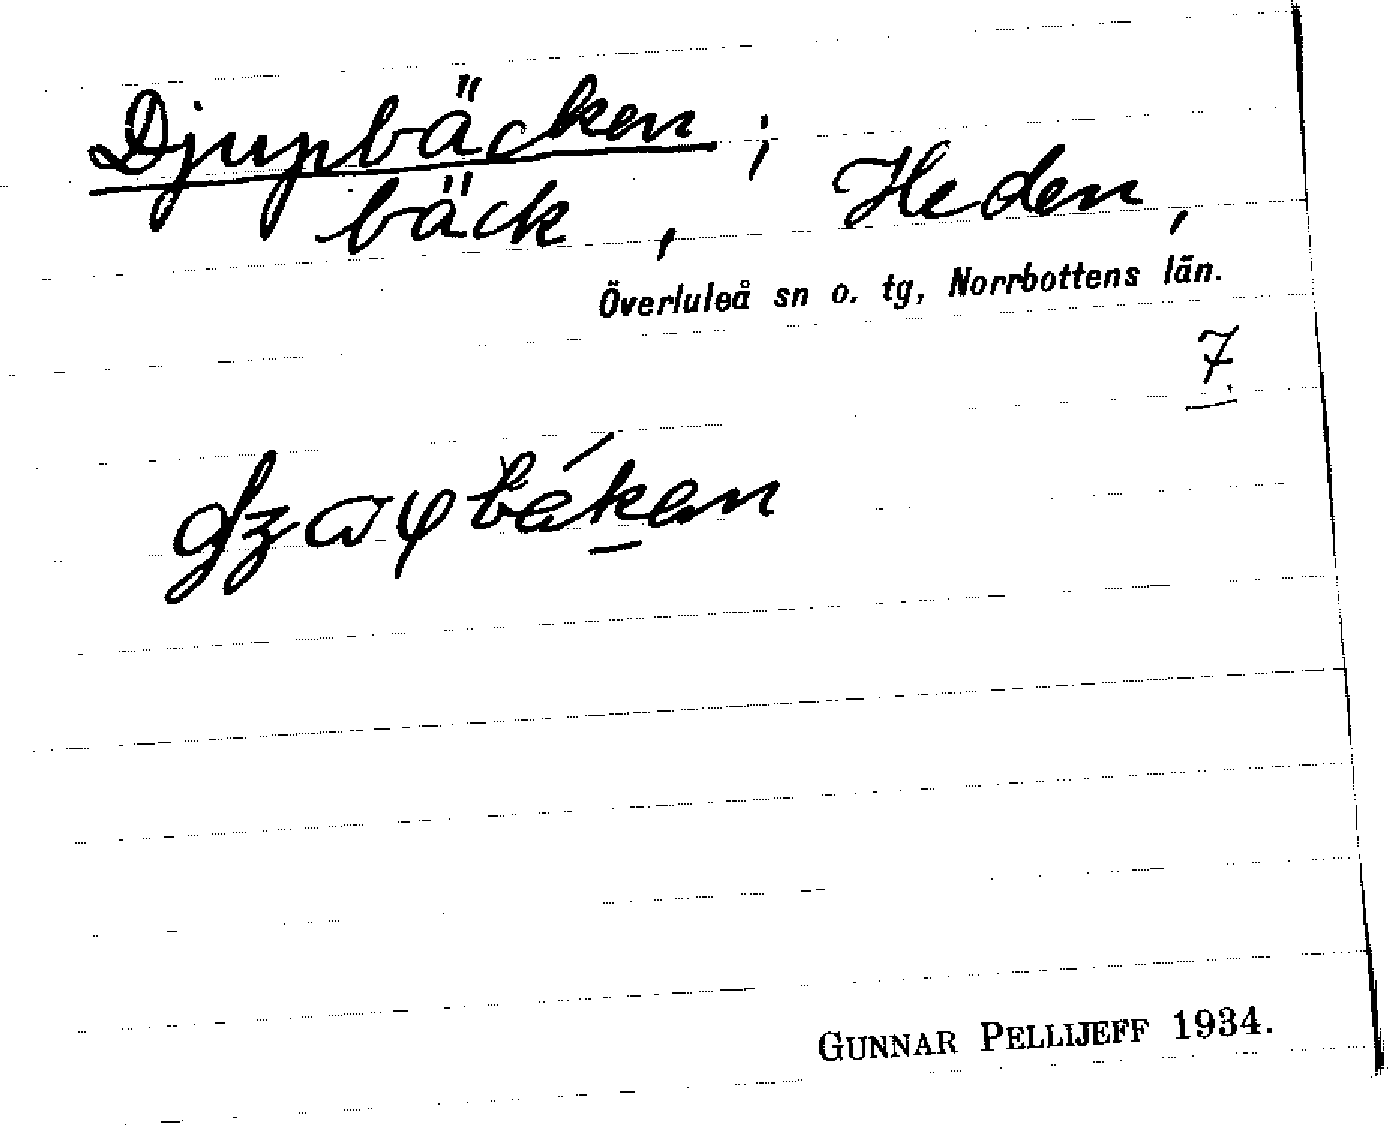 Djupbäcken ;
bäck , Heden,
Överluleå sn o. tg, Norrbottens län.
7.
GUNNAR PELLIJEFF 1934.